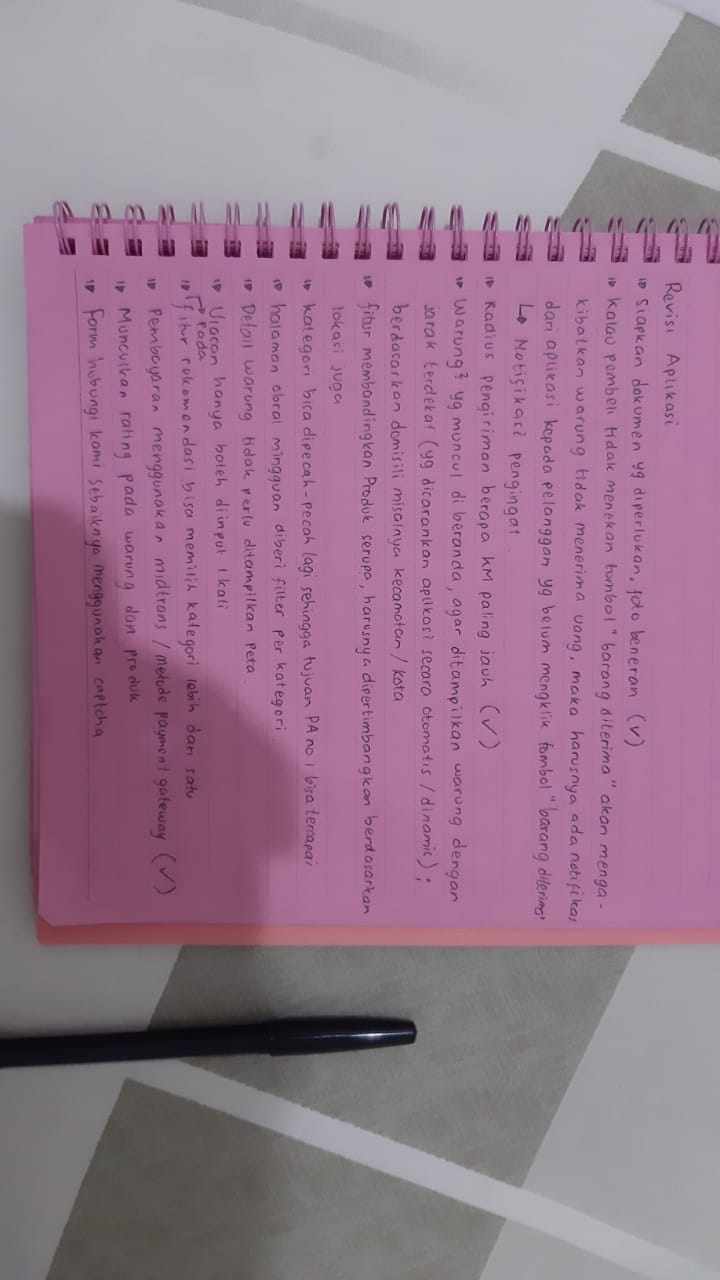 Revisi Aplikasi
Siapkan dokumen yg diperlukan, foto beneran (✓)
Kalau pembeli tidak menekan tombol "barang diterima" akan menga-
kibatkan warung tidak menerima uang, maka harusnya ada notifikas
dari aplikasi kepada pelanggan yg belum mengklik tombol "barang diterima"
↳ Notifikasi pengingat
Radius pengiriman berapa KM paling jauh (✓)
Warung² yg muncul di beranda, agar ditampilkan warung dengan
jarak terdekat (yg dicarankan aplikasi secara otomatis / dinamis);
berdasarkan domisili misalnya kecamatan / kota
fitur membandingkan Produk serupa, harusnya dipertimbangkan berdasarkan
lokasi juga
Kategori bisa dipecah-pecah lagi sehingga tujuan PA no 1 bisa tercapai
halaman obral mingguan diberi filter per kategori
Detail warung tidak perlu ditampilkan peta
Ulasan hanya boleh diinput 1 kali
↱ pada
fitur rekomendasi bisa memilih kategori lebih dari satu
Pembayaran menggunakan midtrans / metode payment gateway (✓)
Munculkan rating pada warung dan produk
Form hubungi kami sebaiknya menggunakan captcha